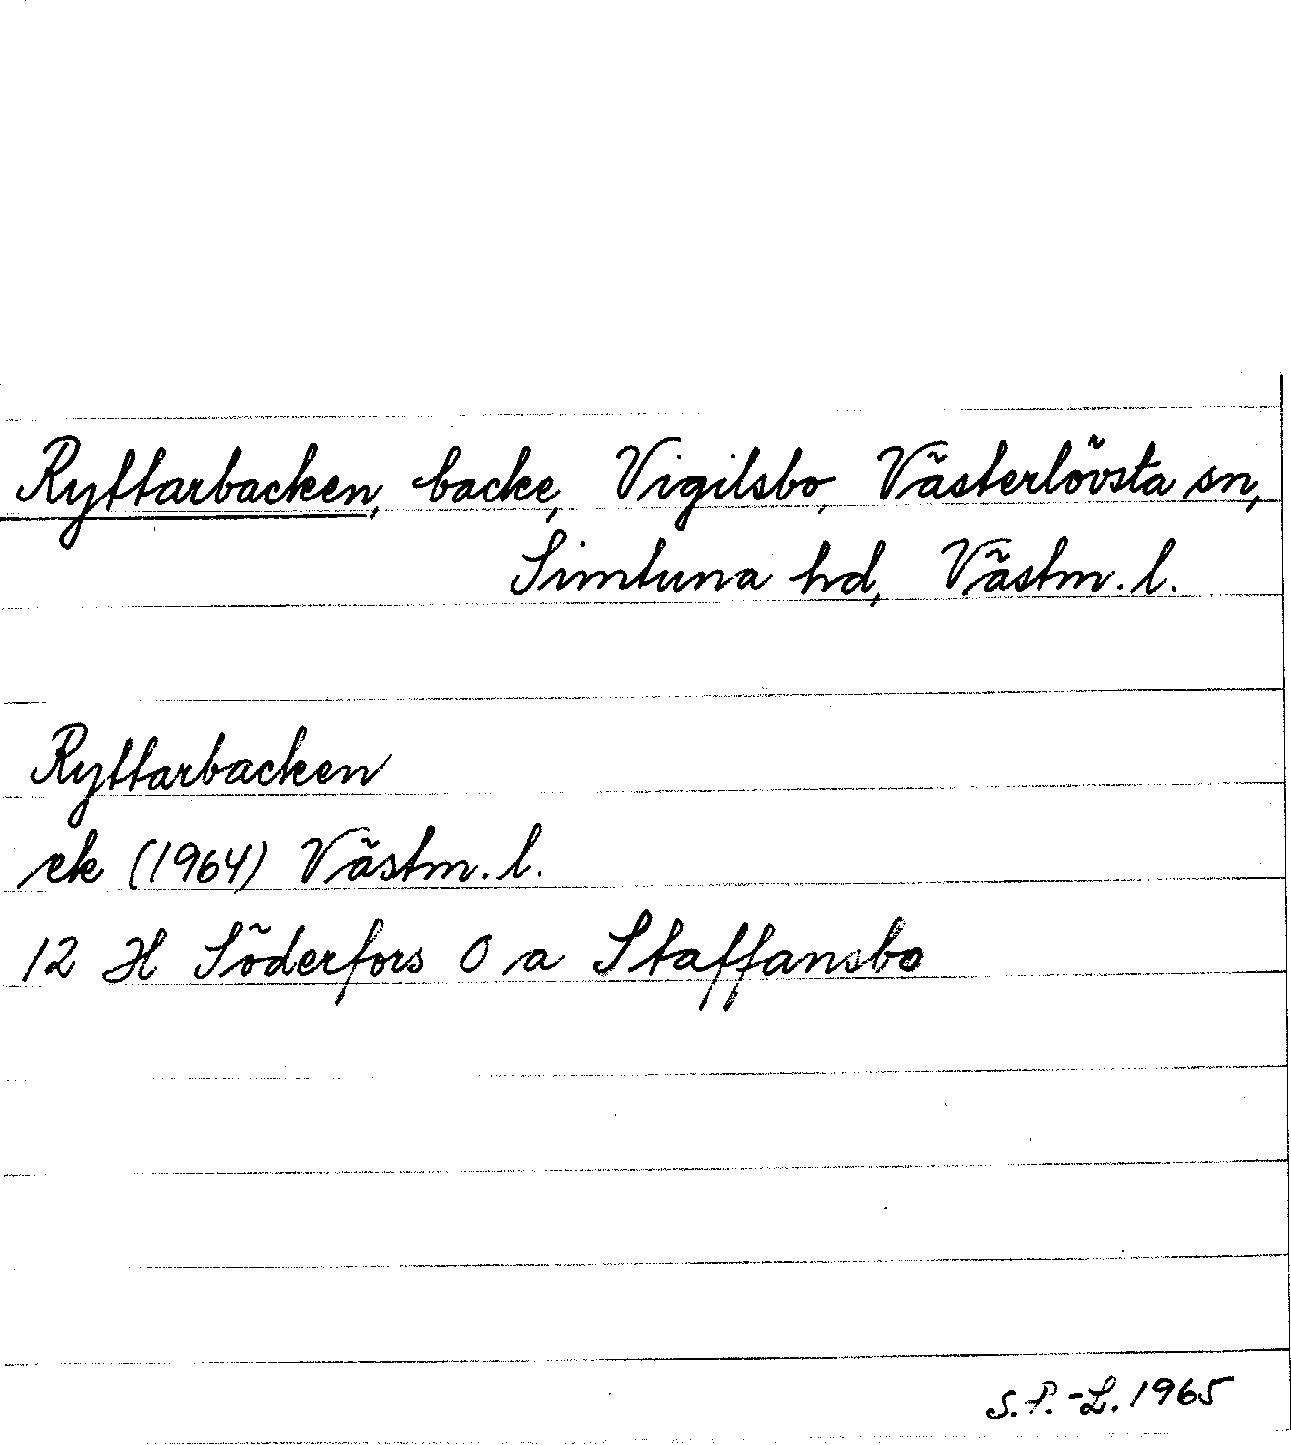 Ryttarbacken, backe, Vigilsbo, Västerlövsta sn,
Simtuna hd, Västm. l.
Ryttarbacken
ek (1964) Västm. l.
12 H Söderfors 0 a Staffansbo
S.P.-L. 1965